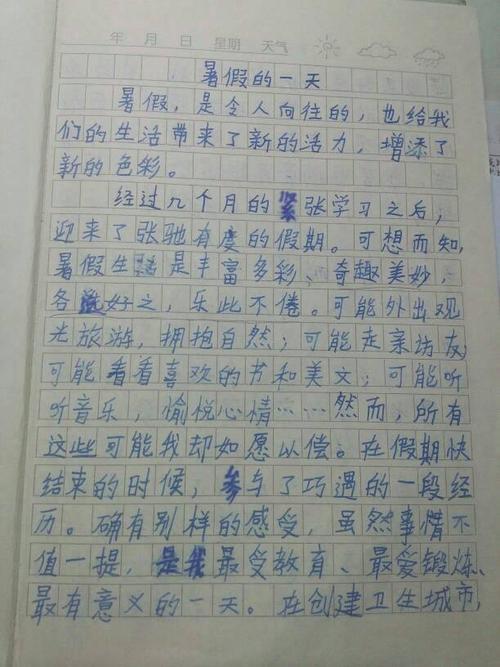 年 月 日 星期 天气
暑假的一天
暑假，是令人向往的，也给我
们的生活带来了新的活力，增添了
新的色彩。
经过几个月的紧张学习之后，
迎来了张驰有度的假期。可想而知，
暑假生活是丰富多彩、奇趣美妙，
各选好之，乐此不倦。可能外出观
光旅游，拥抱自然；可能走亲访友；
可能看看喜欢的书和美文；可能听
听音乐，愉悦心情……然而，所有
这些可能我却如愿以偿。在假期快
结束的时候，参与了巧遇的一段经
历。确有别样的感受，虽然事情不
值一提，是我最受教育、最爱锻炼、
最有意义的一天。在创建卫生城市，